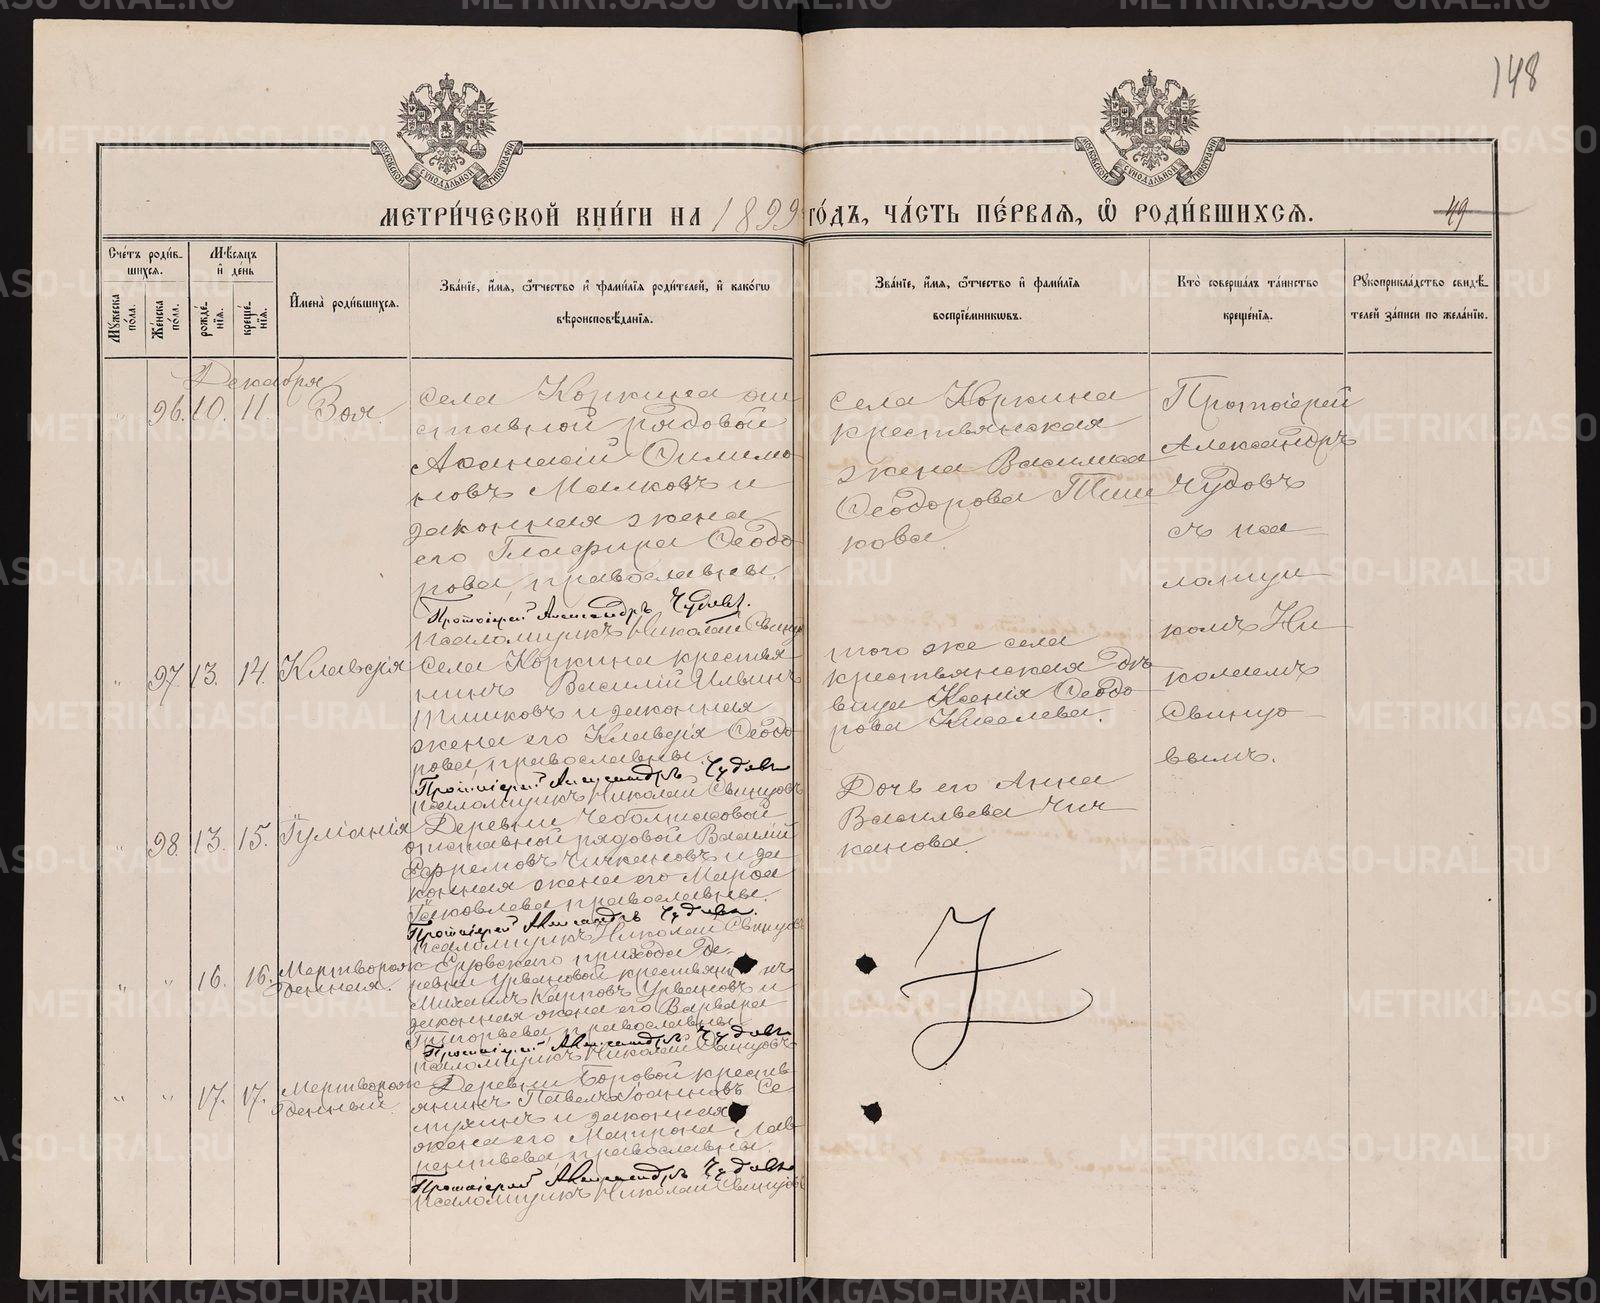 148
МЕТРИ́ЧЕСКОЙ КНИ́ГИ НА 1899 ГО́ДЪ, ЧА́СТЬ ПЕ́РВАЯ, Ѽ РОДИ́ВШИХСЯ.
49
Сче́тъ роди́в-
шихся.
Мѣ́сяцъ
и҆ де́нь
Мꙋ́жеска
по́ла.
Же́нска
по́ла.
рожде́-
нїя.
креще́-
нїя.
И҆мена̀ роди́вшихся.
Зва́нїе, и҆́мя, ѻ҆́тчество и҆ фами́лїя роди́телей, и҆ како́гѡ
вѣроисповѣ́данїя.
Зва́нїе, и҆́мя, ѻ҆́тчество и҆ фами́лїя
воспрїе́мникѡвъ.
Кто̀ соверша́лъ та́инство
креще́нїя.
Рꙋкоприкла́дство свидѣ́-
телей за́писи по жела́нїю.
Декабря
" 96. 10. 11. Зоя.
Села Коркина от
ставной рядовой
Аѳанасій Филимо
новъ Малковъ и
законная жена
его Глафира Ѳеодо
рова, православны.
Протоіерей Александръ Чудовъ.
Псаломщикъ Николай Свинцов
Села Коркина
крестьянская
жена Василиса
Ѳеодорова Тиш
кова.
Протоіерей
Александръ
Чудовъ
съ пса
ломщи
комъ Ни
колаемъ
Свинцо
вымъ.
" 97. 13. 14. Клавдія
Села Коркина крестья
нинъ Василій Ильинъ
Тишковъ и законная
жена его Клавдія Ѳеодо
рова, православны.
Протоіерей Александръ Чудовъ
Псаломщикъ Николай Свинцовъ
того же села
крестьянская дѣ
вица Ксенія Ѳеодо
рова Киселева.
" 98. 13. 15. Іуліанія
Деревни
отставной рядовой Василій
Ефремовъ Чичкановъ и за
конная жена его Марѳа
Яковлева православны.
Протоіерей Александръ Чудовъ.
Псаломщикъ Николай Свинцовъ
Дочь его Анна
Васильева Чич
канова.
" " 16. 16. Мертворож
денная.
прихода де
ревни Урвановой крестьянинъ
Михаилъ Карповъ Урвановъ и
законная жена его Варвара
Григорьева, православны
Протоіерей Александръ Чудовъ
Псаломщикъ Николай Свинцовъ
" " 17. 17. Мертворож
денный.
Деревни Боровой кресть
янинъ Павелъ Іоанновъ Се
и законная
жена его Матрона Лав
рентьева, православны.
Протоіерей Александръ Чудовъ
Псаломщикъ Николай Свинцовъ
METRIKI.GASO-URAL.RU